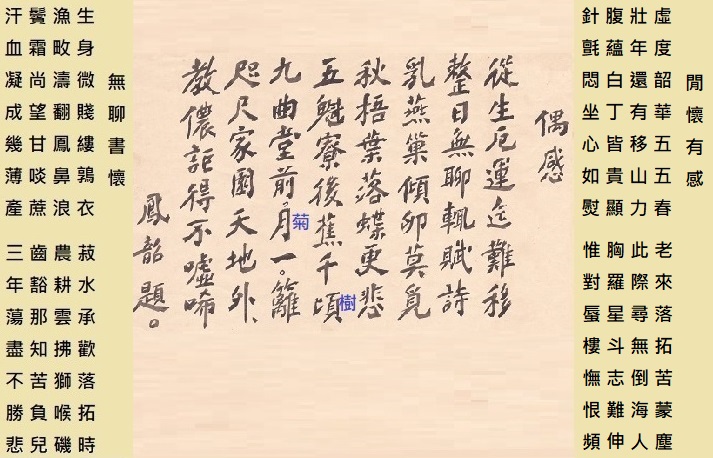 閒懷有感
虛度韶華五五春 老來落拓苦蒙塵
壯年還有移山力 此際尋無倒海人
腹蘊白丁皆貴顯 胸羅星斗志難伸
針氈悶坐心如熨 惟對蜃樓憮恨頻
偶感
從生厄運迄難移
整日無聊輒賦詩
乳燕巢傾卵莫覓
秋梧葉落蝶更悲
五魁寮後蕉千頃
樹
九曲堂前。月一。籬
菊
咫尺家園天地外、
教儂詎得不噓唏
鳳韶題。
無聊書懷
生身微賤縷鶉衣 菽水承歡落拓時
漁畋濤翻鳳鼻浪 農耕雲拂獅喉磯
鬢霜尚望甘啖蔗 齒豁那知苦負兒
汗血凝成幾薄產 三年蕩盡不勝悲